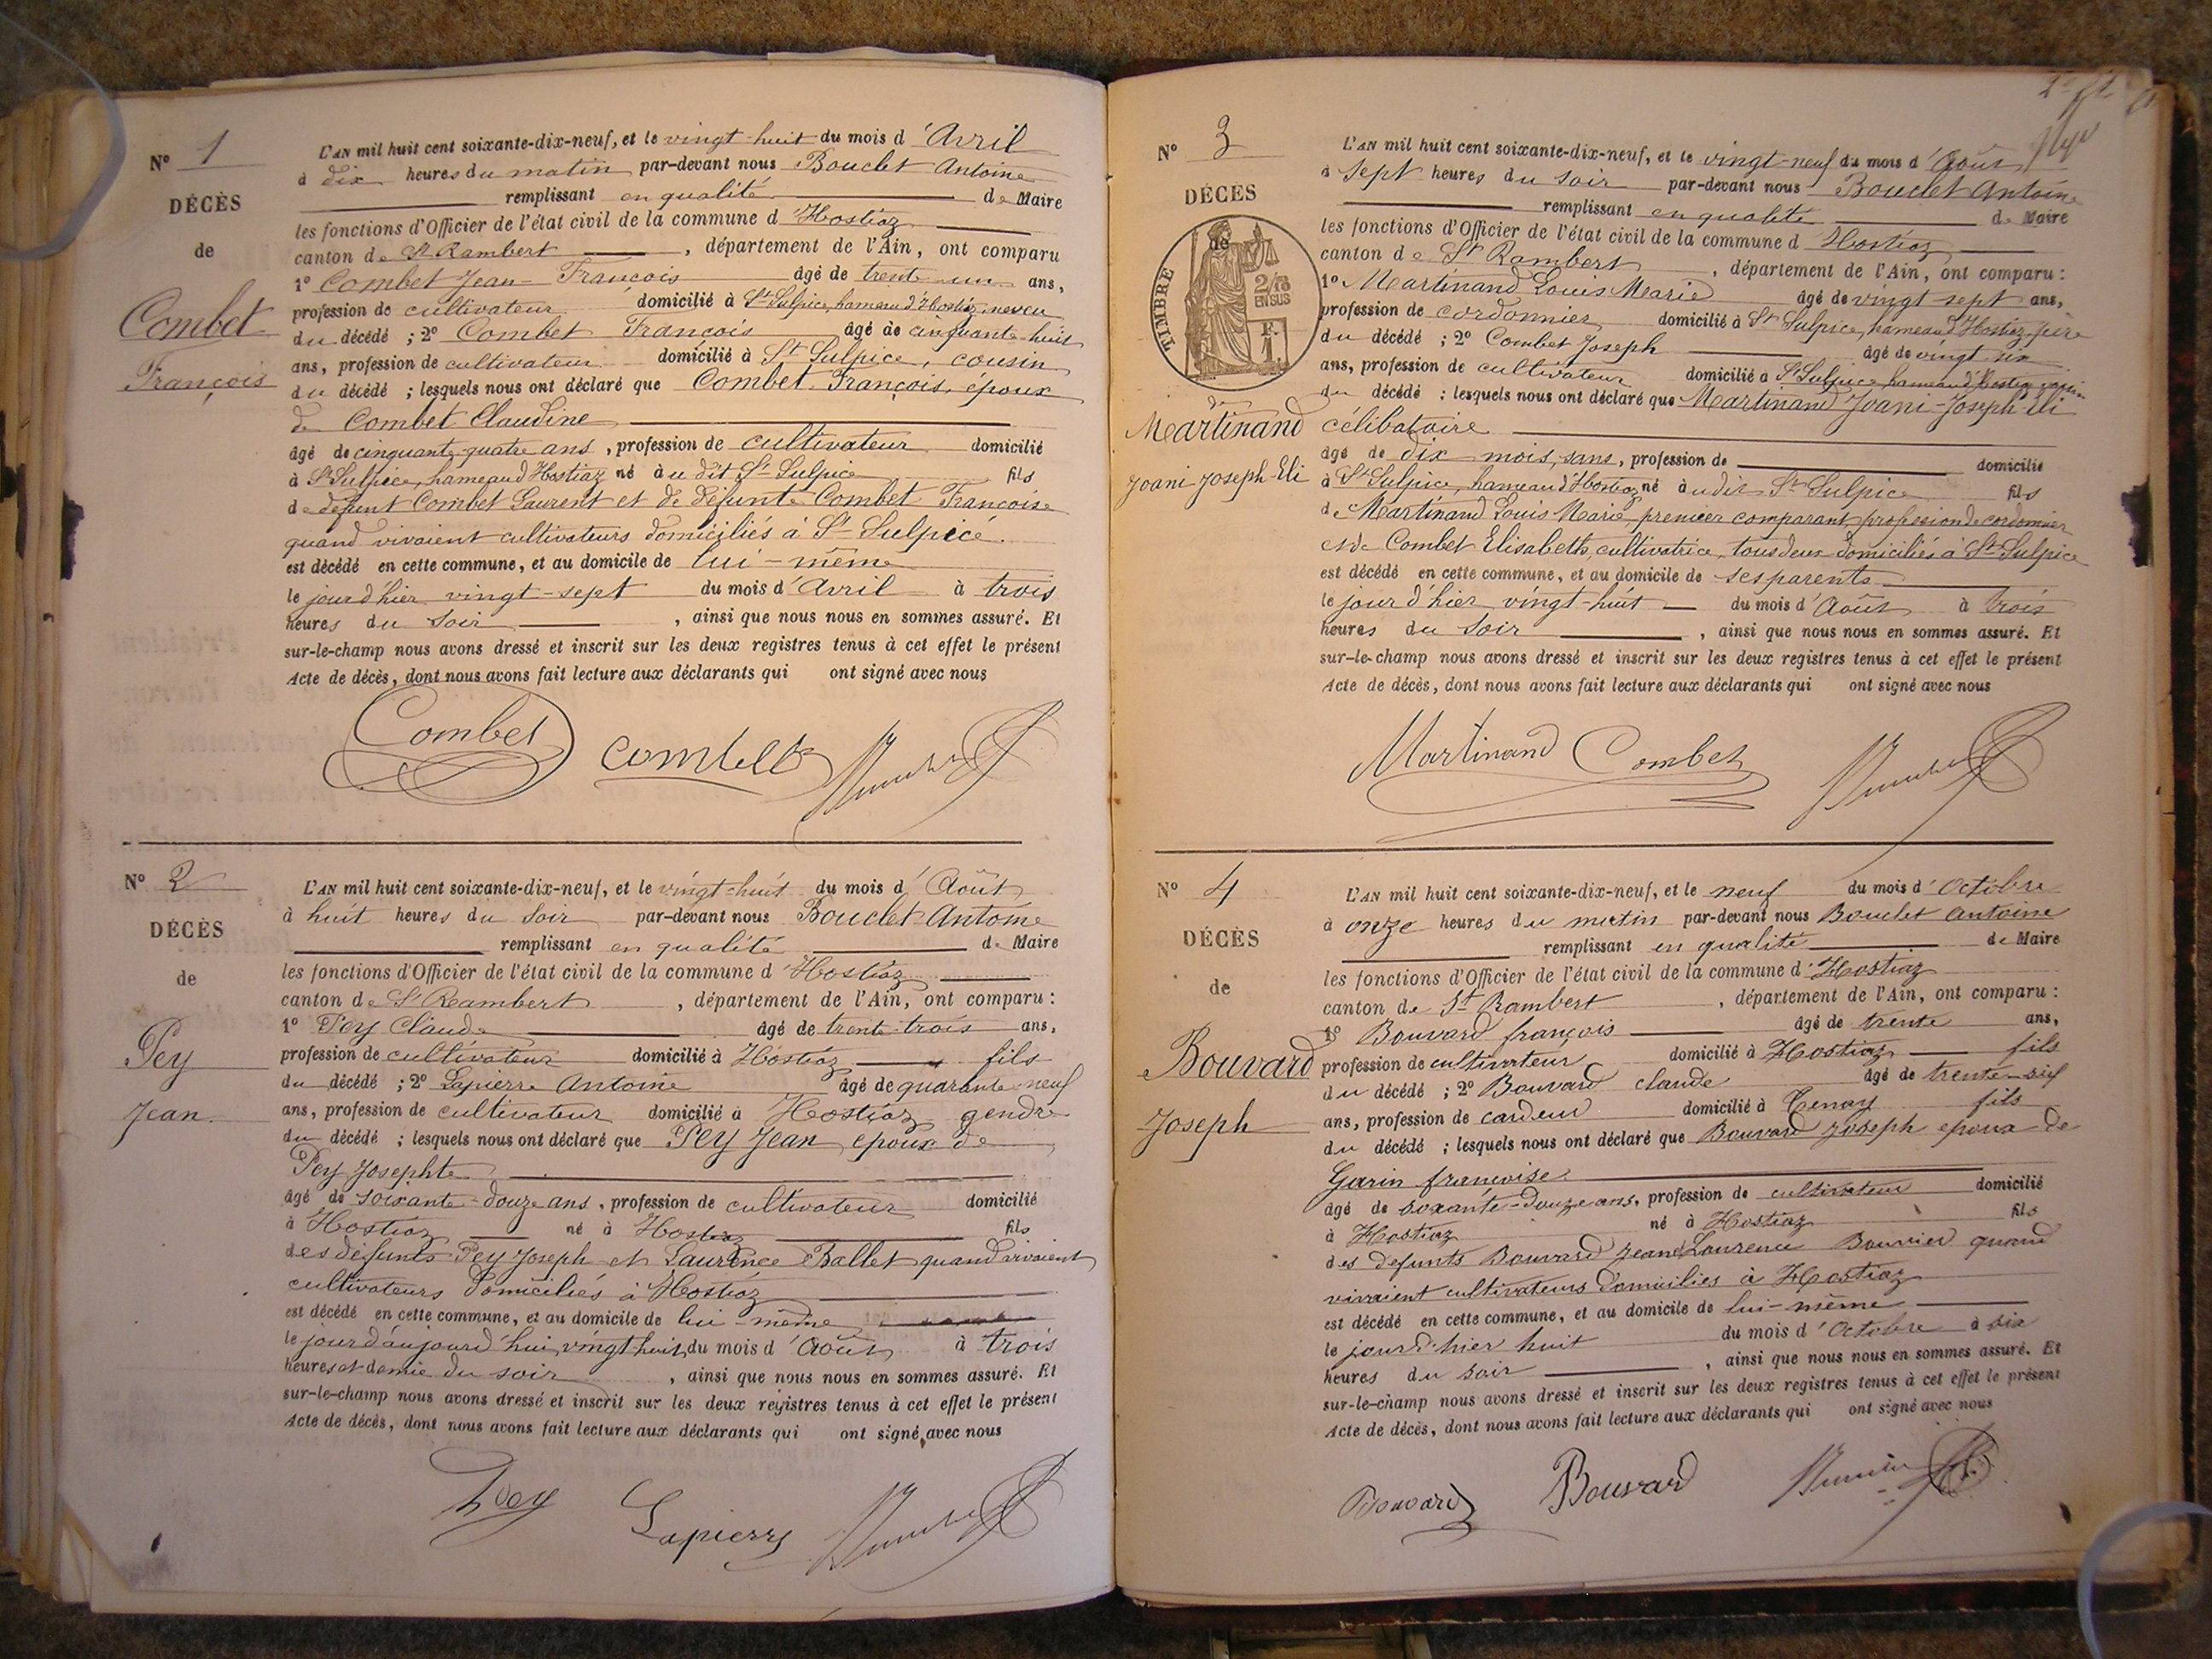 N° 1
DÉCÈS
de
Combet
François
L'AN mil huit cent soixante-dix-neuf, et le vingt-huit du mois d'Avril
à dix heures du matin par-devant nous Bouclet Antoine
remplissant en qualité de Maire
les fonctions d'Officier de l'état civil de la commune d'Hostiaz
canton de St Rambert, département de l'Ain, ont comparu
1° Combet Jean-François âgé de trente-un ans,
profession de cultivateur domicilié à St Sulpice, hameau d'Hostiaz, neveu
du décédé ; 2° Combet François âgé de cinquante-huit
ans, profession de cultivateur domicilié à St Sulpice, cousin
du décédé ; lesquels nous ont déclaré que Combet François, epoux
de Combet Claudine
âgé de cinquante-quatre ans, profession de cultivateur domicilié
à St Sulpice, hameau d'Hostiaz né à u dit St Sulpice fils
de défunt Combet Laurent et de défunte Combet Françoise
quand vivaient cultivateurs domiciliés à St Sulpice.
est décédé en cette commune, et au domicile de lui-même
le jour d'hier vingt-sept du mois d'Avril à trois
heures du soir, ainsi que nous nous en sommes assuré. Et
sur-le-champ nous avons dressé et inscrit sur les deux registres tenus à cet effet le présent
Acte de décès, dont nous avons fait lecture aux déclarants qui ont signé avec nous
Combet
N° 2
DÉCÈS
de
Pey
Jean.
L'AN mil huit cent soixante-dix-neuf, et le vingt-huit du mois d'Août
à huit heures du soir par-devant nous Bouclet Antoine
remplissant en qualité de Maire
les fonctions d'Officier de l'état civil de la commune d'Hostiaz
canton de St Rambert, département de l'Ain, ont comparu :
1° Pey Claude âgé de trente-trois ans,
profession de cultivateur domicilié à Hostiaz fils
du décédé ; 2° Lapierre Antoine âgé de quarante-neuf
ans, profession de cultivateur domicilié à Hostiaz gendre
du décédé ; lesquels nous ont déclaré que Pey Jean, epoux de
Pey Josephte
âgé de soixante-douze ans, profession de cultivateur domicilié
à Hostiaz né à Hostiaz fils
des défunts Pey Joseph et Laurence Ballet quand vivaient
cultivateurs domiciliés à Hostiaz
est décédé en cette commune, et au domicile de lui-même
le jour d'aujourd'hui, vingt huit du mois d'Août à trois
heures et demie du soir, ainsi que nous nous en sommes assuré. Et
sur-le-champ nous avons dressé et inscrit sur les deux registres tenus à cet effet le présent
Acte de décès, dont nous avons fait lecture aux déclarants qui ont signé avec nous
Pey Lapierre
N° 3
DÉCÈS
de
TIMBRE
2/10
EN SUS
F.
1.
de
Martinand
Joani Joseph-Eli
L'AN mil huit cent soixante-dix-neuf, et le vingt-neuf du mois d'Août
à sept heures du soir par-devant nous Bouclet Antoine
remplissant en qualité de Maire
les fonctions d'Officier de l'état civil de la commune d Hostiaz
canton de St Rambert, département de l'Ain, ont comparu :
1° Martinand Louis Marie âgé de vingt sept ans,
profession de cordonnier domicilié à St Sulpice, hameau d'Hostiaz, père
du décédé ; 2° Combet Joseph âgé de vingt six
ans, profession de cultivateur domicilié à St Sulpice hameau d'Hostiaz
du décédé ; lesquels nous ont déclaré que Martinand Joani-Joseph-Eli
célibataire
âgé de dix mois, sans, profession de domicilié
à St Sulpice, hameau d'Hostiaz né à u dit St Sulpice fils
de Martinand Louis Marie, premier comparant, profession de cordonnier
et de Combet Elisabeth, cultivatrice, tous deux domiciliés à St Sulpice
est décédé en cette commune, et au domicile de ses parents
le jour d'hier vingt-huit du mois d'Août à trois
heures du soir, ainsi que nous nous en sommes assuré. Et
sur-le-champ nous avons dressé et inscrit sur les deux registres tenus à cet effet le présent
Acte de décès, dont nous avons fait lecture aux déclarants qui ont signé avec nous
Martinand Combet
N° 4
DÉCÈS
de
Bouvard
Joseph
L'AN mil huit cent soixante-dix-neuf, et le neuf du mois d'Octobre
à onze heures du matin par-devant nous Bouclet Antoine
remplissant en qualité de Maire
les fonctions d'Officier de l'état civil de la commune d'Hostiaz
canton de St Rambert, département de l'Ain, ont comparu :
1° Bouvard françois âgé de trente ans,
profession de cultivateur domicilié à Hostiaz fils
du décédé ; 2° Bouvard claude âgé de trente-six
ans, profession de cardeur domicilié à Tenay fils
du décédé ; lesquels nous ont déclaré que Bouvard Joseph epoux de
Garin françoise
âgé de soxante-douze ans, profession de cultivateur domicilié
à Hostiaz né à Hostiaz fils
des defunts Bouvard Jean Laurence Bouvier quand
vivaient cultivateurs domiciliés à Hostiaz
est décédé en cette commune, et au domicile de lui-même
le jour d'hier huit du mois d'Octobre à six
heures du soir, ainsi que nous nous en sommes assuré. Et
sur-le-champ nous avons dressé et inscrit sur les deux registres tenus à cet effet le présent
Acte de décès, dont nous avons fait lecture aux déclarants qui ont signé avec nous
Bouvard Bouvard